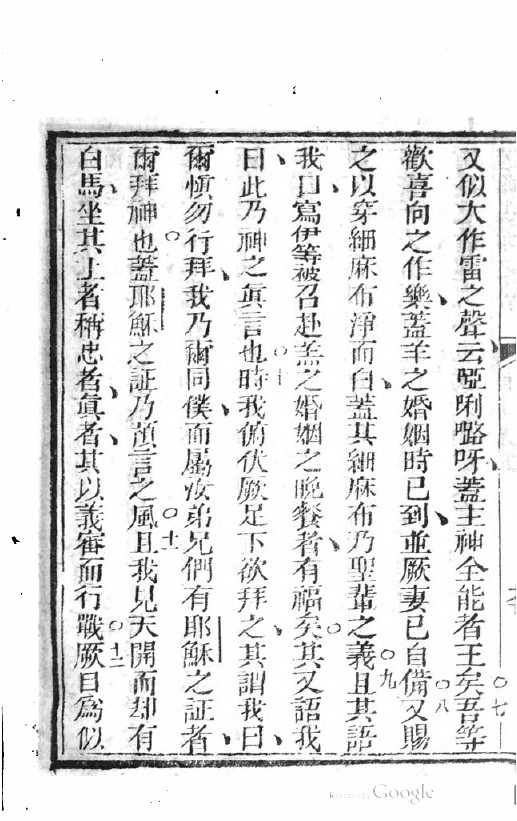 又似大作雷之聲、云㖠唎嚕呀、蓋主神全能者王矣○七吾等
歡喜向之作樂、蓋羊之婚姻時已到、並厥妻已自備○八又賜
之以穿細麻布淨而白、蓋其細麻布乃聖輩之義○九且其語
我曰、寫伊等被召赴羔之婚姻之晚餐者、有福矣○其又語我
曰、此乃神之眞言也○十時我俯伏厥足下欲拜之、其謂我曰、
爾愼勿行拜、我乃爾同僕、而屬汝弟兄們有耶穌之証者、
爾拜神也○蓋耶穌之証乃預言之風○十一且我見天開而却有
白馬、坐其上者稱忠者、眞者、其以義審而行戰○十二厥目爲似
Google